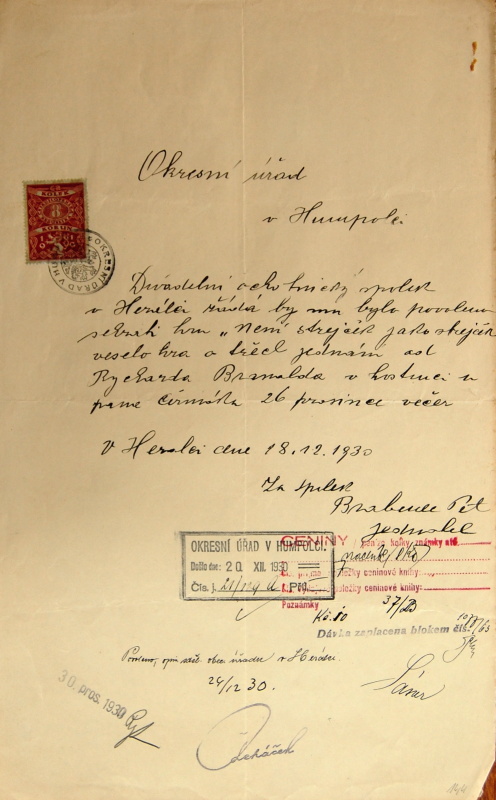 Okresní úřad
v Humpolci
KOLEK
KORUN
OKRESNÍ ÚŘAD V HUMPOLCI
Divadelní ochotnický spolek
v Herálci žádá by mu bylo povoleno
sehrati hru „Není strejček jako strejček
veselo hra o třech jednám od
Rycharda Branalda v hostinci u
pana Čermáka 26 prosince večer
V Herálci dne 18.12.1930
Za spolek
Brabenec Pet
jednatel
OKRESNÍ ÚŘAD V HUMPOLCI.
Došlo dne: 20 XII. 1930
Čís. j.
CENINY
knihy známky atd.
složky ceninové knihy:
složky ceninové knihy:
Poznámky
37/
Kč. 10
Dávka zaplacena blokem čís.
Povoleno, opis sděl. obec. úřadu v Herálci.
24/12 30.
30. pros. 1930
144